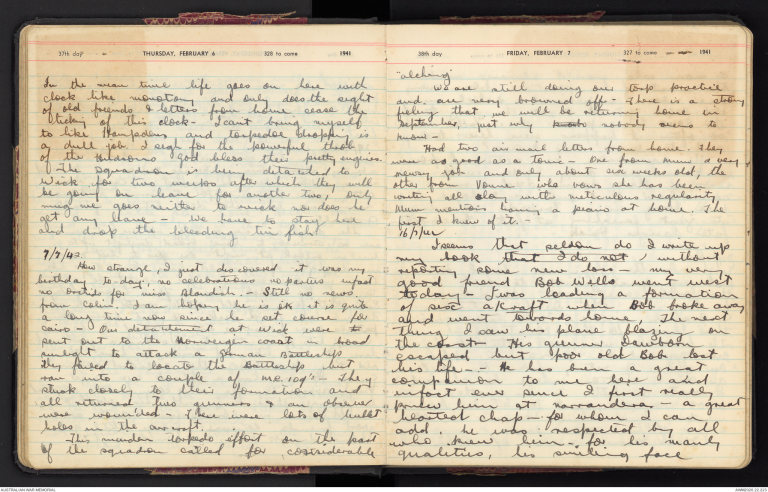 37th day THURSDAY, FEBRUARY 6 328 to come 1941
In the mean time life goes on here with
clock like monotony and only does the sight
of old friends & letters from home cease the
ticking of this clock - I cant bring myself
to like Hampdens and torpedoe dropping is
a dull job. I sigh for the powerful throb
of the Hudsons God bless their pretty engines.
The squadron is been detached to
Wick for two weeks after which they will
be going on leave for another two, only
mug me goes neither to wick nor does he
get any leave - We have to stay here
and drop the bleeding tin fish
7/7/42.
How strange, I just discovered it was my
birthday to-day, no celebrations no parties infact
no orchids for miss Blandish. - Still no news
from Colin. I am hoping he is ok it is quite
a long time now since he set course for
Cairo - Our detachment at Wick were
sent out to the Norweigen coast in broad
sunlight to attack a German Battleship
they failed to locate the Battleship but
ran into a couple of M.E. 109's - They
stuck closely to their formation and
all returned. Two gunners & one observer
were wounded - There were lots of bullet
holes in the aircraft.
This murden torpedo effort on the part
of the squadron called for considerable
38th day FRIDAY, FEBRUARY 7 327 to come 1941
"alching"
We are still doing our torp practice
and are very browned off - There is a strong
feeling that we will be returning home in
September, just why nobody seems to
know -
Had two air mail letters from home. They
were as good as a tonic - One from Mum a very
newsy job and only about six weeks old, the
other from Vonne who vows she has been
writing all along with meticulous regularity
Mum mentions having a piano at home. The
first I knew of it. -
16/7/42
I seems that seldom do I write up
my book that I do not, without
reporting some new loss - my very
good friend Bob Wills went west
today - I was leading a formation
of six a/craft when Bob broke away
and went towards home. The next
thing I saw his plane blazing on
the coast - His gunner Dawborn
escaped but poor old Bob lost
his life - - He has been a great
companion to me here and
infact ever since I first really
knew him at Narrandera - a great
hearted chap - for whom I can
add he was respected by all
who knew him - for his manly
qualities, his smiling face
AUSTRALIAN WAR MEMORIAL